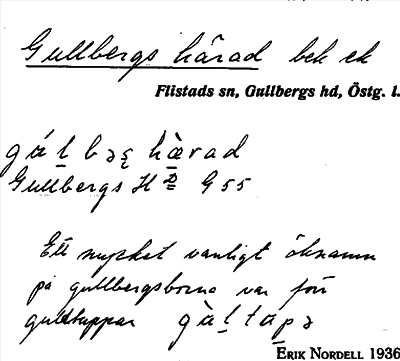 Gullbergs härad bek ek
Flistads sn, Gullbergs hd, Östg. l.
Gullbergs Hd G 55
Ett mycket vanligt öknamn
på gullbergsborna var förr
gulltuppar
ERIK NORDELL 1936